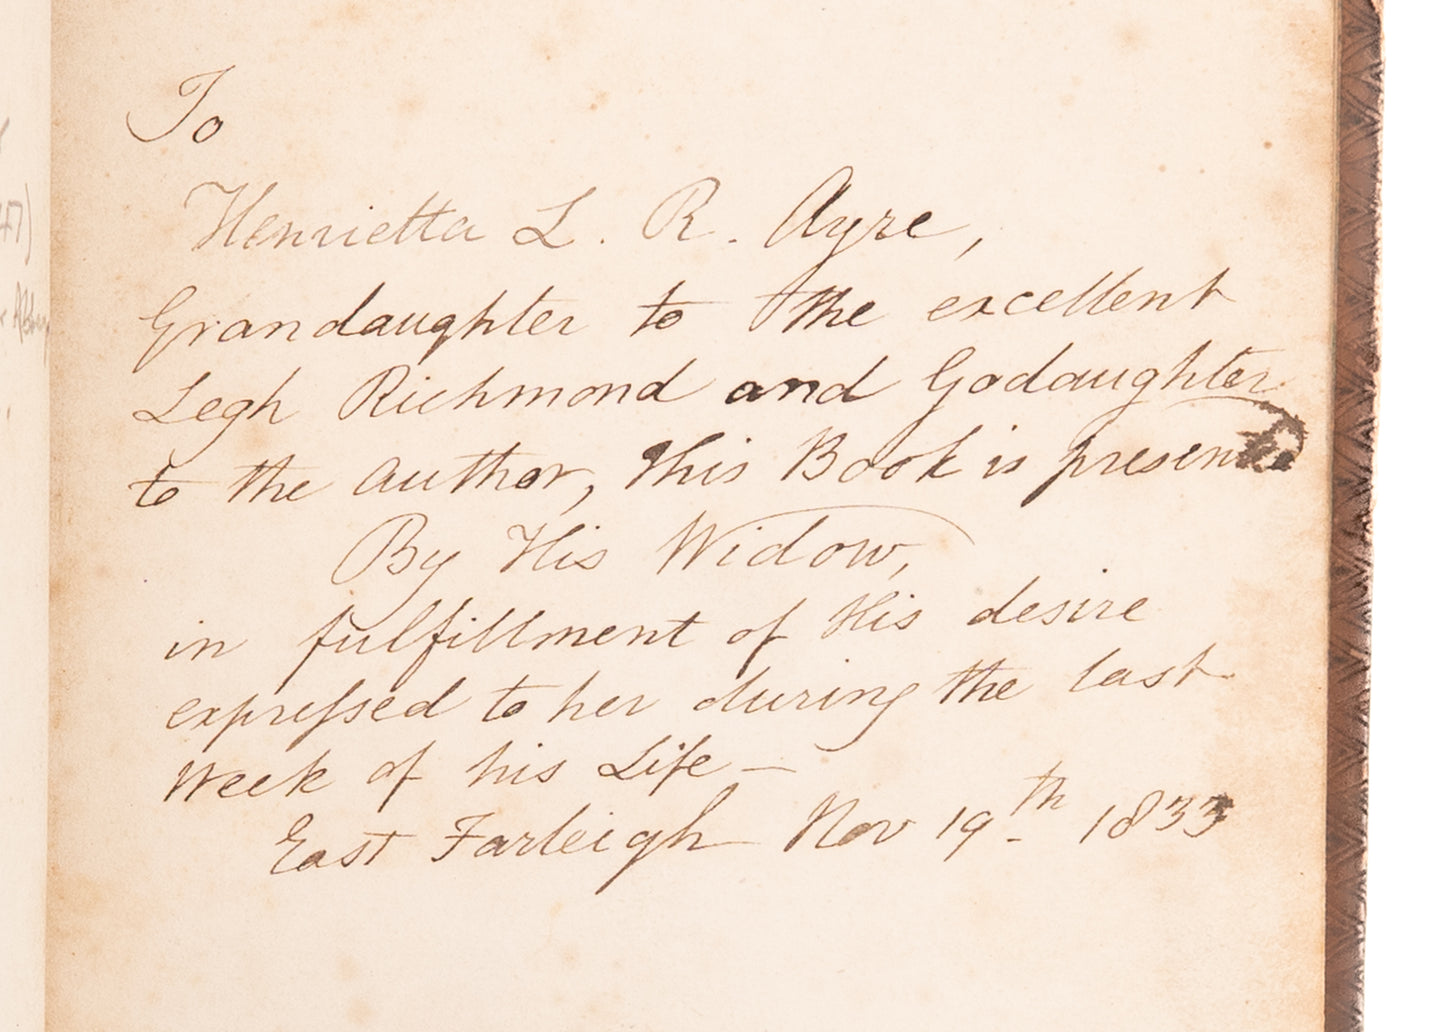 To
Henrietta L. R. Ayre,
Grandaughter to the excellent
Legh Richmond and Godaughter
to the author, this Book is presented
By His Widow,
in fulfillment of His desire
expreſsed to her during the last
Week of his Life —
East Farleigh Nov 19th 1833
47)